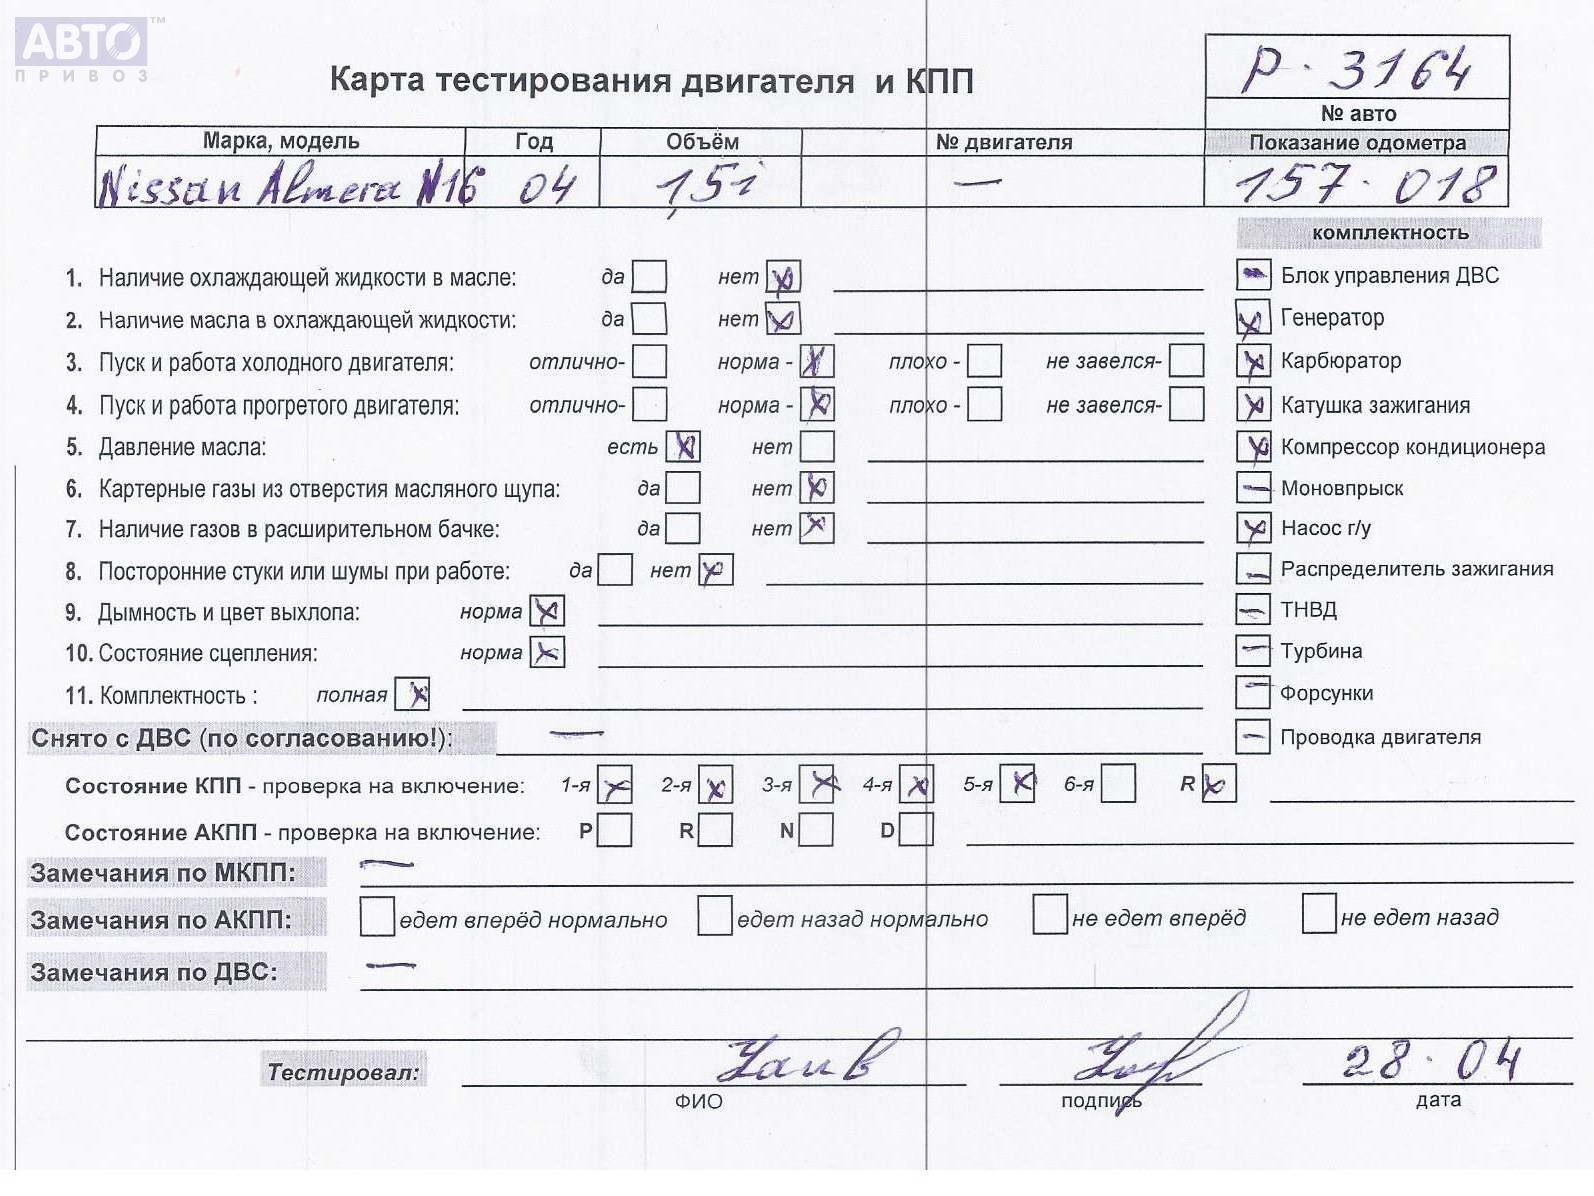 АВТО™
ПРИВОЗ
Карта тестирования двигателя и КПП
Р-3164
№ авто
Марка, модель Год Объём № двигателя Показание одометра
Nissan Almera N16 04 1,5i — 157-018
комплектность
1. Наличие охлаждающей жидкости в масле: да нет x
Блок управления ДВС
2. Наличие масла в охлаждающей жидкости: да нет x
x Генератор
3. Пуск и работа холодного двигателя: отлично- норма - x плохо - не завелся-
x Карбюратор
4. Пуск и работа прогретого двигателя: отлично- норма - x плохо - не завелся-
x Катушка зажигания
5. Давление масла: есть x нет
x Компрессор кондиционера
6. Картерные газы из отверстия масляного щупа: да нет x
— Моновпрыск
7. Наличие газов в расширительном бачке: да нет x
x Насос г/у
8. Посторонние стуки или шумы при работе: да нет x
— Распределитель зажигания
9. Дымность и цвет выхлопа: норма x
— ТНВД
10. Состояние сцепления: норма x
— Турбина
11. Комплектность : полная x
— Форсунки
Снято с ДВС (по согласованию!): —
— Проводка двигателя
Состояние КПП - проверка на включение: 1-я x 2-я x 3-я x 4-я x 5-я x 6-я R x
Состояние АКПП - проверка на включение: P R N D
Замечания по МКПП: —
Замечания по АКПП: едет вперёд нормально едет назад нормально не едет вперёд не едет назад
Замечания по ДВС: —
Тестировал: 28.04
ФИО подпись дата